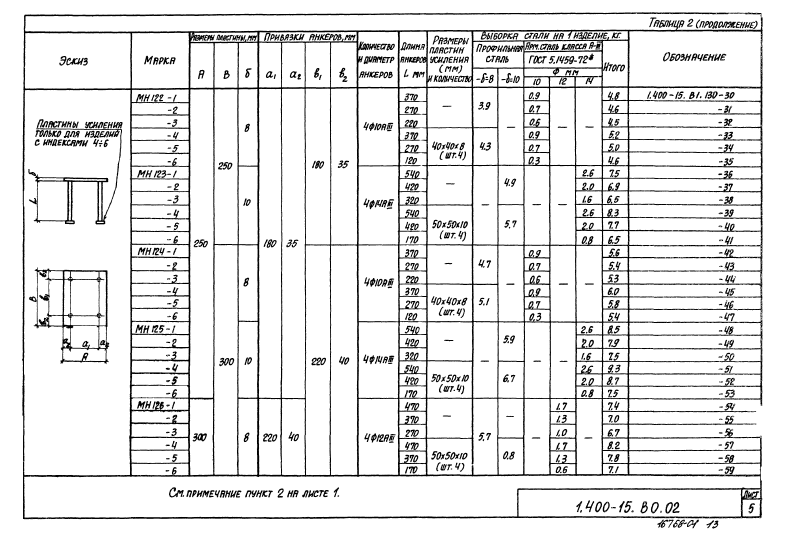 ТАБЛИЦА 2 (ПРОДОЛЖЕНИЕ)
ЭСКИЗ | МАРКА | РАЗМЕРЫ ПЛАСТИНЫ, ММ | ПРИВЯЗКИ АНКЕРОВ, ММ | КОЛИЧЕСТВО И ДИАМЕТР АНКЕРОВ | ДЛИНА АНКЕРОВ L ММ | РАЗМЕРЫ ПЛАСТИН УСИЛЕНИЯ (ММ) И КОЛИЧЕСТВО | ВЫБОРКА СТАЛИ НА 1 ИЗДЕЛИЕ, КГ. | ОБОЗНАЧЕНИЕ
ПРОФИЛЬНАЯ СТАЛЬ | АРМ. СТАЛЬ КЛАССА А-III ГОСТ 5.1459-72* | ИТОГО
A | B | δ | a₁ | a₂ | b₁ | b₂ | -δ=8 | -δ=10 | Ф ММ | 10 | 12 | 14
ПЛАСТИНЫ УСИЛЕНИЯ
ТОЛЬКО ДЛЯ ИЗДЕЛИЙ
С ИНДЕКСАМИ 4÷6
δ
L
B
b₂ b₁ b₂
a₂ a₁ a₂
A
250 | 180 | 35
250 | 180 | 35
8 | 4Ф10АIII
МН122-1 | 370 | — | 3.9 | — | 0.9 | — | — | 4.8 | 1.400-15. В1. 130-30
-2 | 270 | 0.7 | 4.6 | -31
-3 | 220 | 0.6 | 4.5 | -32
-4 | 370 | 40х40х8 (шт. 4) | 4.3 | 0.9 | 5.2 | -33
-5 | 270 | 0.7 | 5.0 | -34
-6 | 120 | 0.3 | 4.6 | -35
10 | 4Ф14АIII
МН123-1 | 540 | — | — | 4.9 | — | — | 2.6 | 7.5 | -36
-2 | 420 | 2.0 | 6.9 | -37
-3 | 320 | 1.6 | 6.5 | -38
-4 | 540 | 50х50х10 (шт. 4) | 5.7 | 2.6 | 8.3 | -39
-5 | 420 | 2.0 | 7.7 | -40
-6 | 170 | 0.8 | 6.5 | -41
300 | 220 | 40
8 | 4Ф10АIII
МН124-1 | 370 | — | 4.7 | — | 0.9 | — | — | 5.6 | -42
-2 | 270 | 0.7 | 5.4 | -43
-3 | 220 | 0.6 | 5.3 | -44
-4 | 370 | 40х40х8 (шт. 4) | 5.1 | 0.9 | 6.0 | -45
-5 | 270 | 0.7 | 5.8 | -46
-6 | 120 | 0,3 | 5.4 | -47
10 | 4Ф14АIII
МН125-1 | 540 | — | — | 5.9 | — | — | 2.6 | 8.5 | -48
-2 | 420 | 2.0 | 7.9 | -49
-3 | 320 | 1.6 | 7.5 | -50
-4 | 540 | 50х50х10 (шт. 4) | 6,7 | 2.6 | 9.3 | -51
-5 | 420 | 2.0 | 8.7 | -52
-6 | 170 | 0.8 | 7.5 | -53
300 | 8 | 220 | 40 | 4Ф12АIII
МН126-1 | 470 | — | 5.7 | — | — | 1.7 | — | 7.4 | -54
-2 | 370 | 1.3 | 7.0 | -55
-3 | 270 | 1.0 | 6.7 | -56
-4 | 470 | 50х50х10 (шт. 4) | 0.8 | 1.7 | 8.2 | -57
-5 | 370 | 1.3 | 7.8 | -58
-6 | 170 | 0.6 | 7.1 | -59
СМ. ПРИМЕЧАНИЕ ПУНКТ 2 НА ЛИСТЕ 1.
1.400-15. В0.02
ЛИСТ
5
16768-01 13